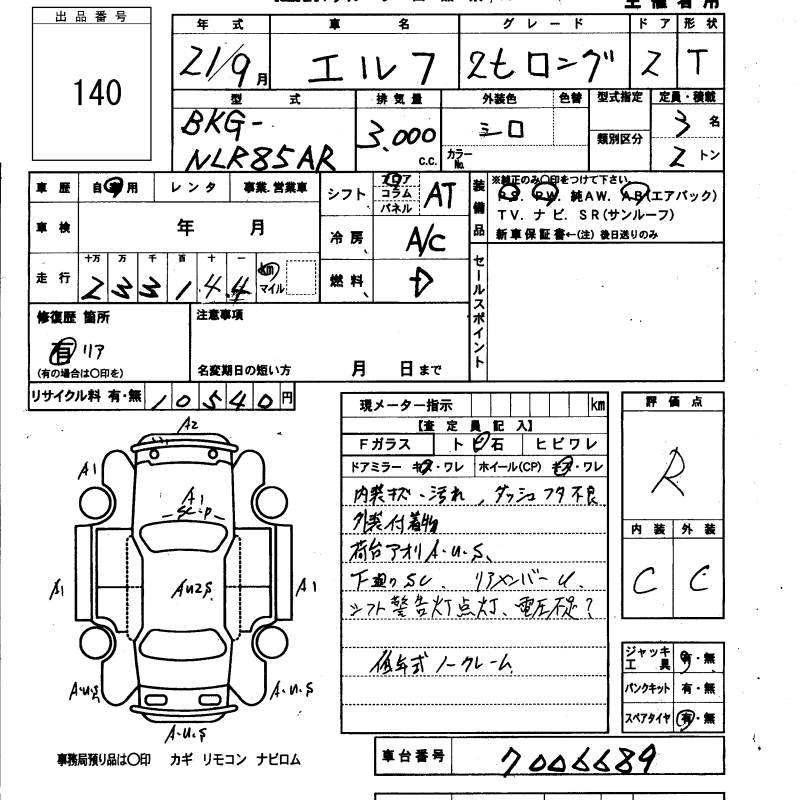 出品番号
140
年式 車名 グレード ドア 形状
21/9月 エルフ 2tロング 2 T
型式 排気量 外装色 色替 型式指定 定員・積載
BKG-
NLR85AR 3.000 C.C. シロ カラーNo. 類別区分 3名
2トン
車歴 自家用 レンタ 事業.営業車
シフト フロア コラム パネル AT
車検 年 月
冷房 A/C
走行 十万 万 千 百 十 一
2 3 3 1 4 4 km マイル
燃料 D
装備品
※純正のみ○印をつけて下さい。
PS. PW. 純AW. AB(エアバック)
TV. ナビ. SR(サンルーフ)
新車保証書←(注)後日送りのみ
セールスポイント
修復歴 箇所
有 リア
(有の場合は○印を)
注意事項
名変期日の短い方 月 日まで
リサイクル料 有・無 10540円
現メーター指示 km
【査定員記入】
Fガラス ト ビ 石 ヒビワレ
ドアミラー キズ・ワレ ホイール(CP) キズ・ワレ
内装キズ・汚れ、ダッシュフタ不良
外装付着物
荷台アオリA・U・S、
下廻りSC. リアメンバーU.
シフト警告灯点灯、電圧不足?
低年式ノークレーム
評価点
R
内装 外装
C C
ジャッキ工具 有・無
パンクキット 有・無
スペアタイヤ 有・無
A2
A1
A1
SC・P
A1
AU2S
A1
A・U・S
A・U・S
A・U・S
事務局預り品は○印 カギ リモコン ナビロム
車台番号 7006689